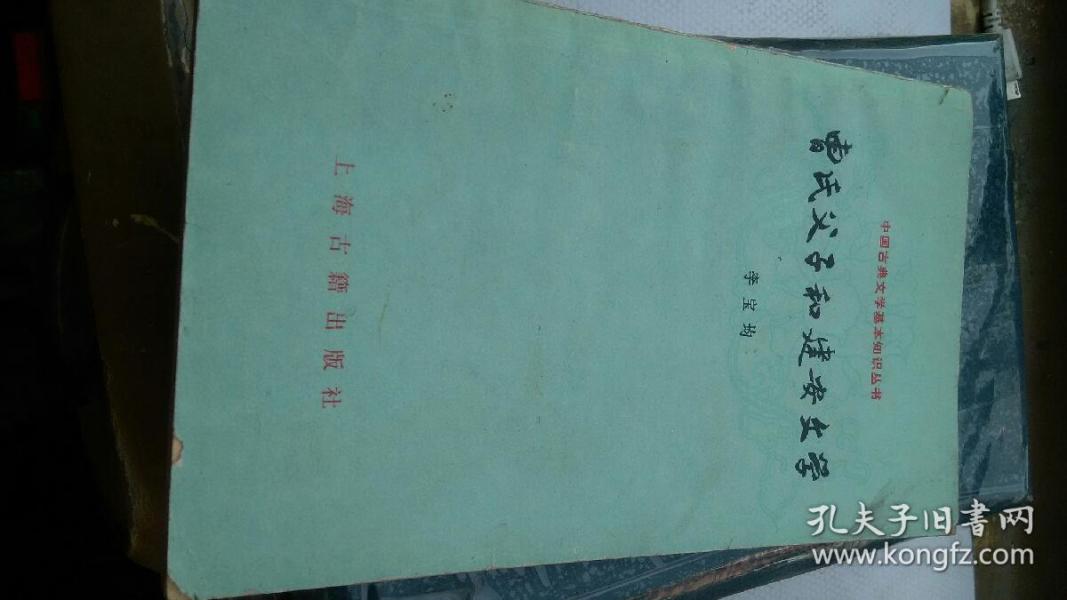 中国古典文学基本知识丛书
曹氏父子和建安文学
李宝均
上海古籍出版社
孔夫子旧書网
www.kongfz.com